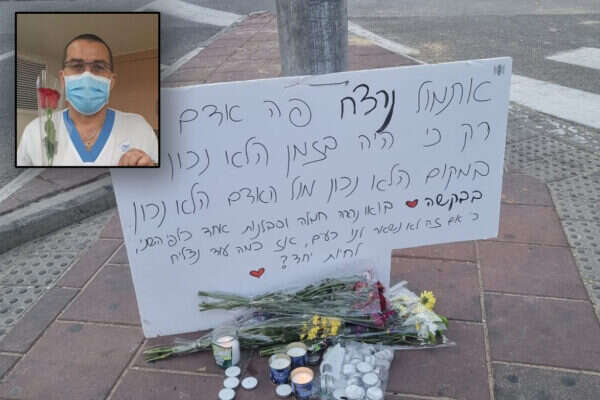 אתמול נרצח פה אדם
רק כי היה בזמן הלא נכון
במקום הלא נכון מול האדם הלא נכון
בבקשה ♥ בואו נרבה חמלה וסבלנות אחד כלפי השני
כי אם זה לא נשאר לנו כעם, אז כמה עוד נצליח
לחיות יחד?